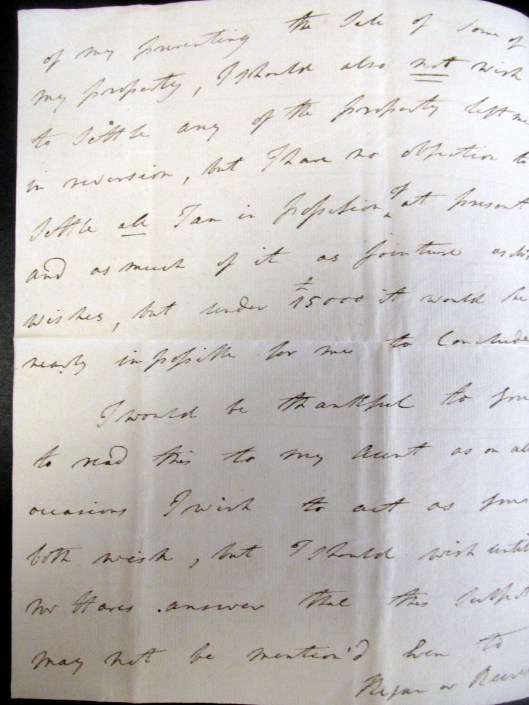 of my preventing the Sale of some of
my property, I should also not wish
to Settle any of the property left me
in reversion, but I have no objection to
Settle all I am in possession of at present
and as much of it as jointure as
wishes, but under £15000 it would be
nearly impossible for me to Conclude
I would be thankful to you
to read this to my Aunt as on all
occasions I wish to act as you
both wish, but I should wish until
Mr Hares answer that this subject
may not be mention'd Even to
or